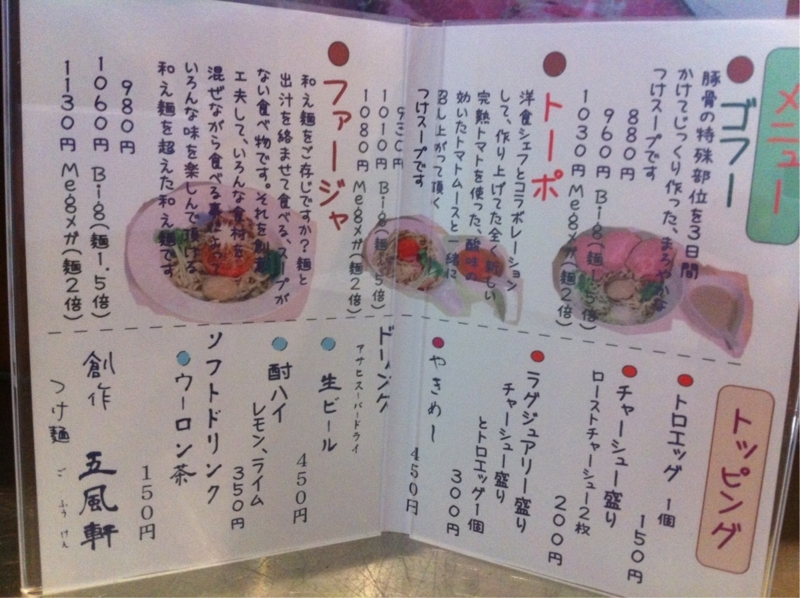 メニュー
ゴフー
豚骨の特殊部位を3日間
かけてじっくり作った、まろやかな
つけスープです
880円
960円 Big(麺1.5倍)
1030円 Megメガ(麺2倍)
トーポ
洋食シェフとコラボレーション
して、作り上げてた全く新しい
完熟トマトを使った、酸味の
効いたトマトムースと一緒に
召し上がって頂く
つけスープです
930円
1010円 Big(麺1.5倍)
1080円 Megメガ(麺2倍)
ファージャ
和え麺をご存じですか?麺と
出汁を絡ませて食べる、スープが
ない食べ物です。それを創意
工夫して、いろんな食材を
混ぜながら食べる事によって
いろんな味を楽しんで頂ける
和え麺を超えた和え麺です
980円
1060円 Big(麺1.5倍)
1130円 Megメガ(麺2倍)
トッピング
トロエッグ 1個
150円
チャーシュー盛り
ローストチャーシュー2枚
200円
ラグジュアリー盛り
チャーシュー盛り
とトロエッグ1個
300円
やきめし
450円
ドリンク
アサヒスーパードライ
生ビール
450円
酎ハイ
レモン、ライム
350円
ソフトドリンク
ウーロン茶
150円
創作 五風軒
つけ麺 ごふうけん